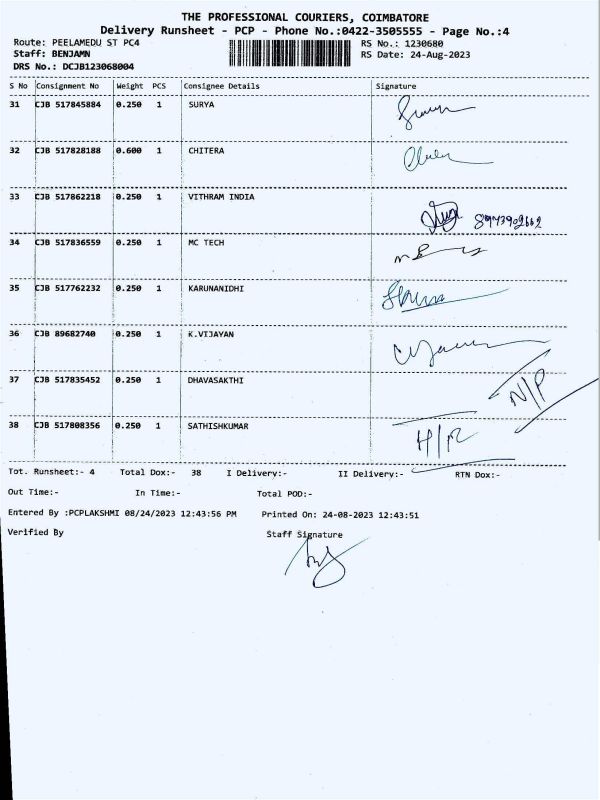 THE PROFESSIONAL COURIERS, COIMBATORE
Delivery Runsheet - PCP - Phone No.:0422-3505555 - Page No.:4
Route: PEELAMEDU ST PC4 RS No.: 1230680
Staff: BENJAMN RS Date: 24-Aug-2023
DRS No.: DCJB123068004
S No Consignment No Weight PCS Consignee Details Signature
31 CJB 517845884 0.250 1 SURYA
32 CJB 517828188 0.600 1 CHITERA
33 CJB 517862218 0.250 1 VITHRAM INDIA
8973902662
34 CJB 517836559 0.250 1 MC TECH
35 CJB 517762232 0.250 1 KARUNANIDHI
36 CJB 89682740 0.250 1 K.VIJAYAN
37 CJB 517835452 0.250 1 DHAVASAKTHI N/P
38 CJB 517808356 0.250 1 SATHISHKUMAR H/R
Tot. Runsheet:- 4 Total Dox:- 38 I Delivery:- II Delivery:- RTN Dox:-
Out Time:- In Time:- Total POD:-
Entered By :PCPLAKSHMI 08/24/2023 12:43:56 PM Printed On: 24-08-2023 12:43:51
Verified By Staff Signature